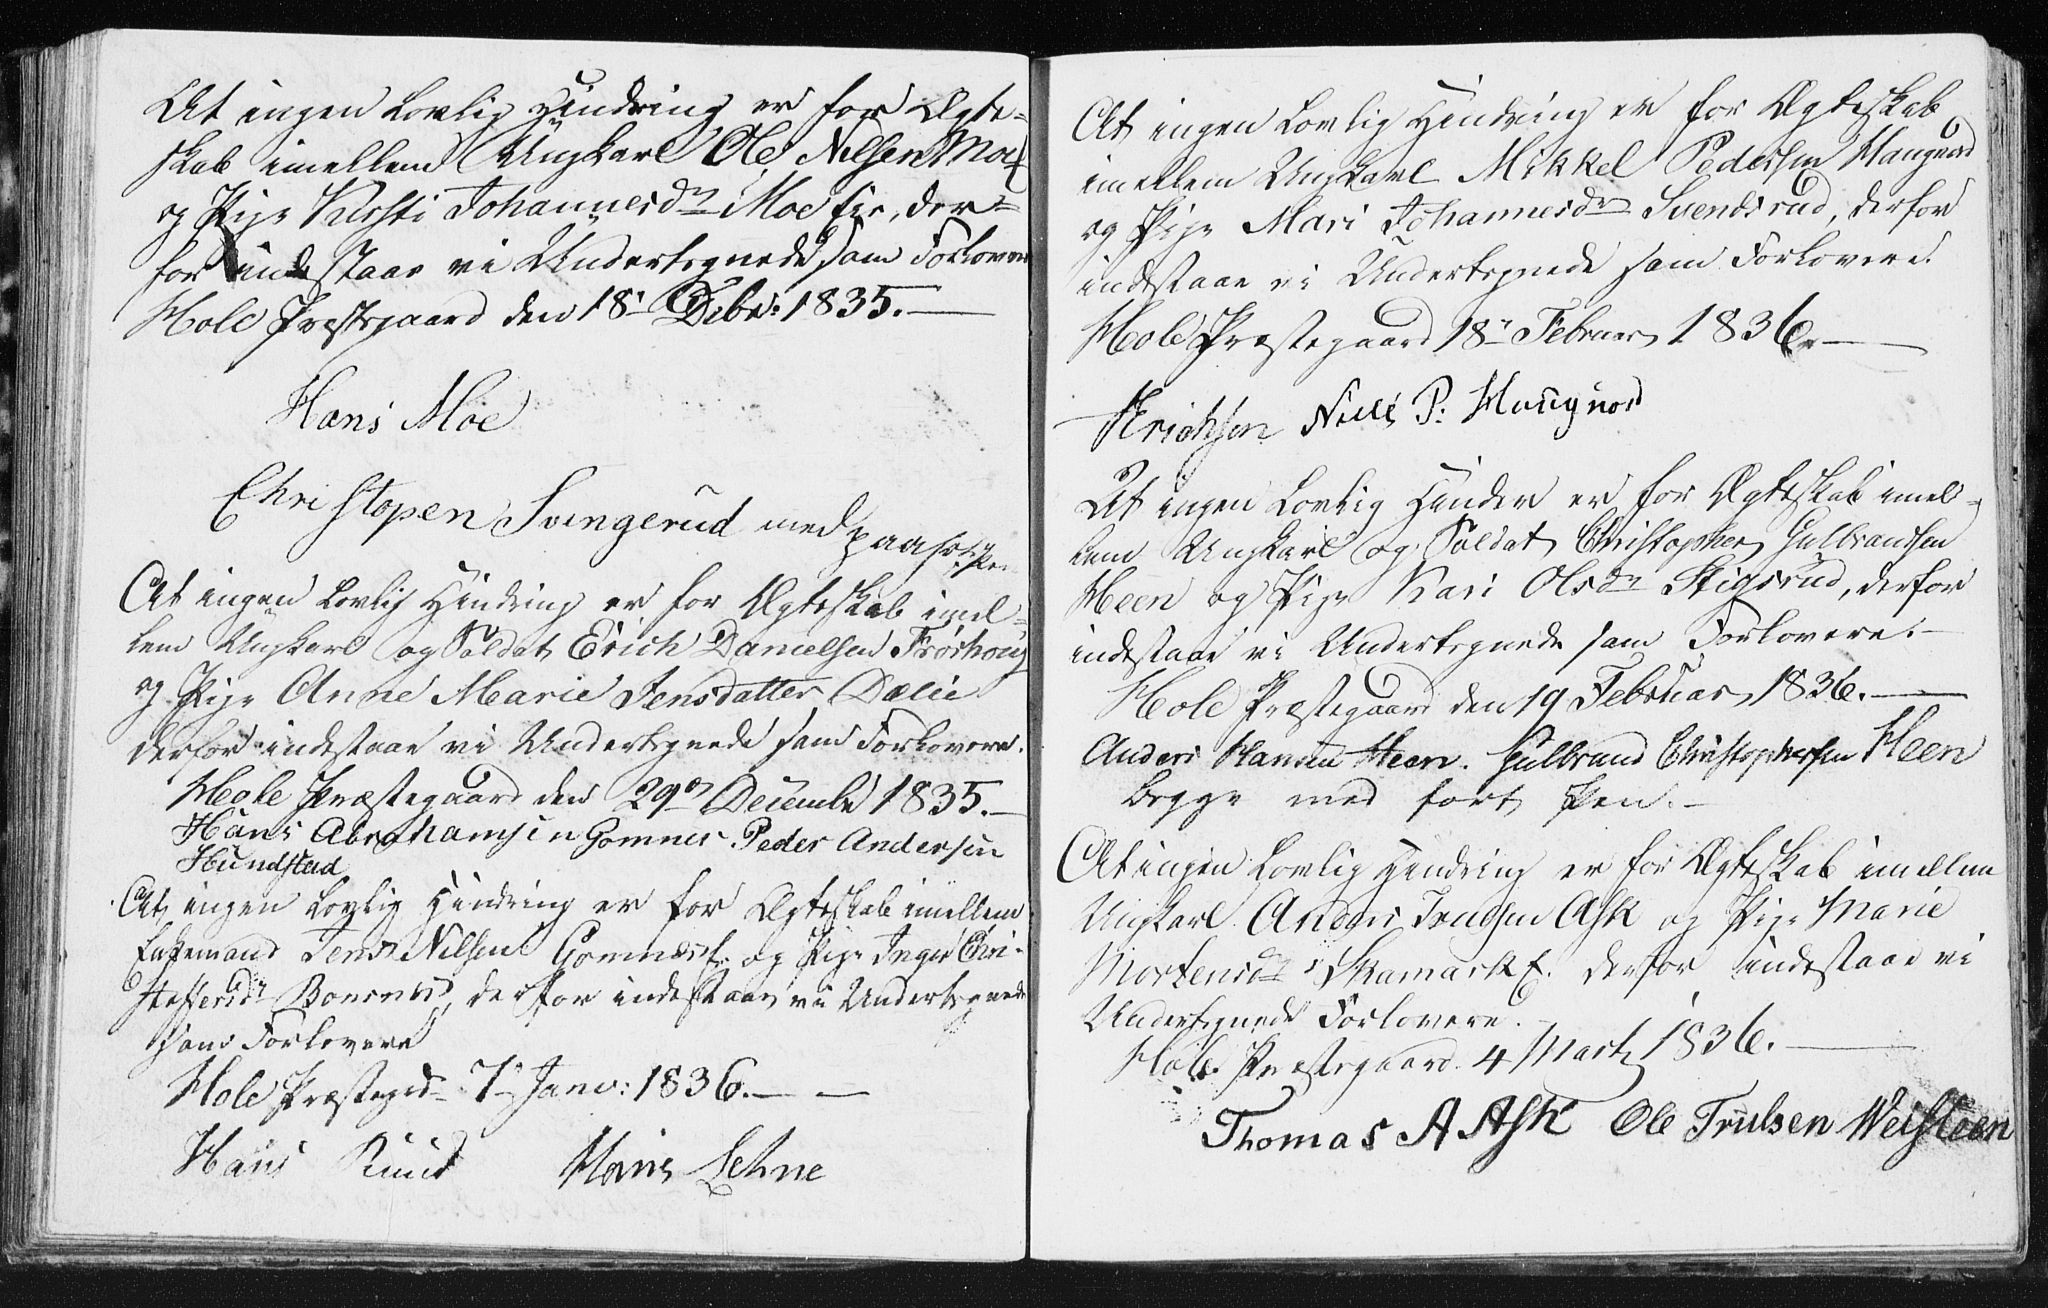 At ingen Lovlig Hindring er for Ægte-
skab imellem Ungkarl Ole Nilsen Moe
og Pige Kirsti Johannesdr Moe Eie, der-
for indestaar vi Undertegnede som Forlovere
Hole Præstegaard den 18de Debr: 1835.
Hans Moe
Christopen Svingerud med paaholden Pen
At ingen Lovlig Hindring er for Ægteskab imel-
lem Ungkarl og Soldat Erich Danielsen Frøshoug
og Pige Anne Marie Jensdatter Dælie
derfor indestaar vi Undertegnede som Forlovere.
Hole Præstegaard den 29de Decembr 1835.
Hans Abrahamsen Gomnes. Peder Andersen
Hundstad
At ingen Lovlig Hindring er for Ægteskab imellem
Enkemand Jens Nilsen Gomnes E. og Pige Inger Chri-
stoffersdr Bonsnes, derfor indestaar vi Undertegnede
som Forlovere
Hole Præstegrd 7de Janv: 1836.
Hans Ruud Hans Lehne
At ingen Lovlig Hindring er for Ægteskab
imellem Ungkarl Mikkel Pedersen Haugnord
og Pige Mari Johannesdr Svendsrud, derfor
indestaar vi Undertegnede som Forlovere.
Hole Præstegaard 18de Februar 1836.
Erichsen Niels P: Haugnord
At ingen Lovlig Hinder er for Ægteskab imel-
lem Ungkarl og Soldat Christopher Gulbrandsen
Heen og Pige Kari Olsdr Stigsrud, derfor
indestaar vi Undertegnede som Forlovere.
Hole Præstegaard den 19 Februar 1836.
Anders Hansen Heen. Gulbrand Christophersen Heen
begge med ført Pen.
At ingen Lovlig Hindring er for Ægteskab imellem
Ungkarl Anders Trulsen Ask og Pige Marie
Mortensdr Skamark E. derfor indestaar vi
Undertegnede Forlovere.
Hole Præstegaard 4 Marts 1836.
Thomas A Ask Ole Trulsen Weisteen